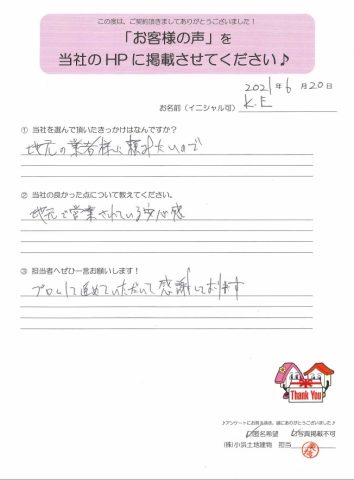 この度は、ご契約頂きましてありがとうございました！
「お客様の声」を
当社のHPに掲載させてください♪
2021年6月20日
お名前（イニシャル可） K.E
① 当社を選んで頂いたきっかけはなんですか？
地元の業者様に頼みたいので
② 当社の良かった点について教えてください。
地元で営業されている安心感
③ 担当者へぜひ一言お願いします！
プロとして進めていただいて感謝しております
Thank You
♪アンケートにお答え頂き、誠にありがとうございました♪
☑匿名希望 ☑写真掲載不可
(株)小浜土地建物 担当